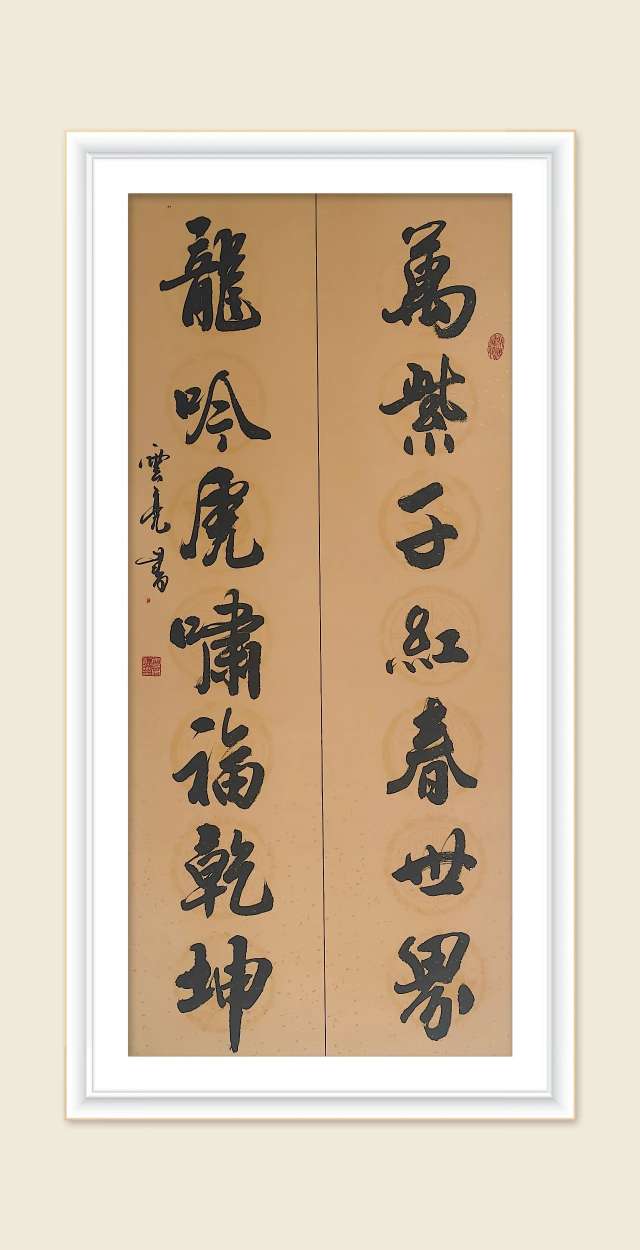 萬紫千紅春世界
龍吟虎嘯福乾坤
雲亮書